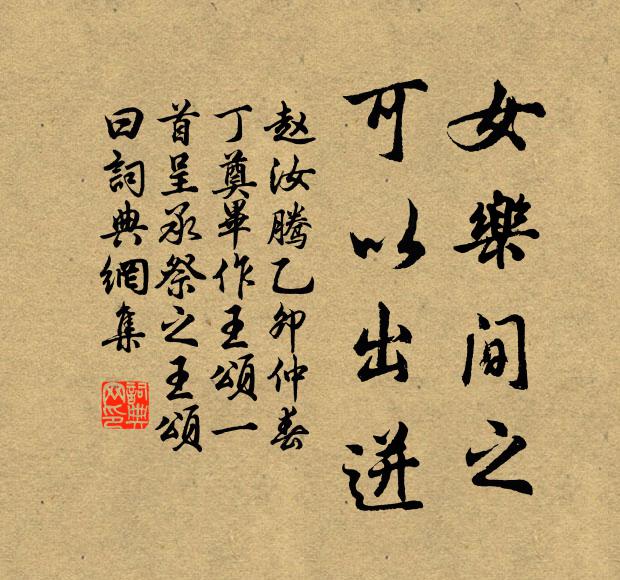 女樂間之
可以出迸
赵汝騰乙卯仲春
丁奠畢作王頌一
首呈承祭之王頌
曰詞典網集
詞典网印